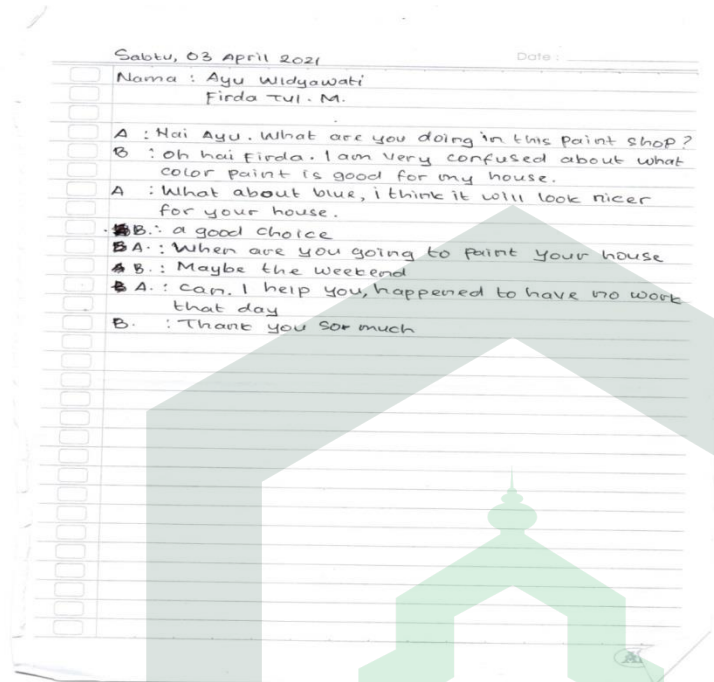 Sabtu, 03 April 2021
Date :
Nama : Ayu Widyawati
Firda Tul. M.
A : Hai Ayu. What are you doing in this Paint shop?
B : Oh hai Firda. I am very confused about what
color paint is good for my house.
A : What about blue, i think it will look nicer
for your house.
B. : a good choice
A. : When are you going to paint your house
B. : Maybe the weekend
A. : can. I help you, happened to have no work
that day
B. : Thank you sor much